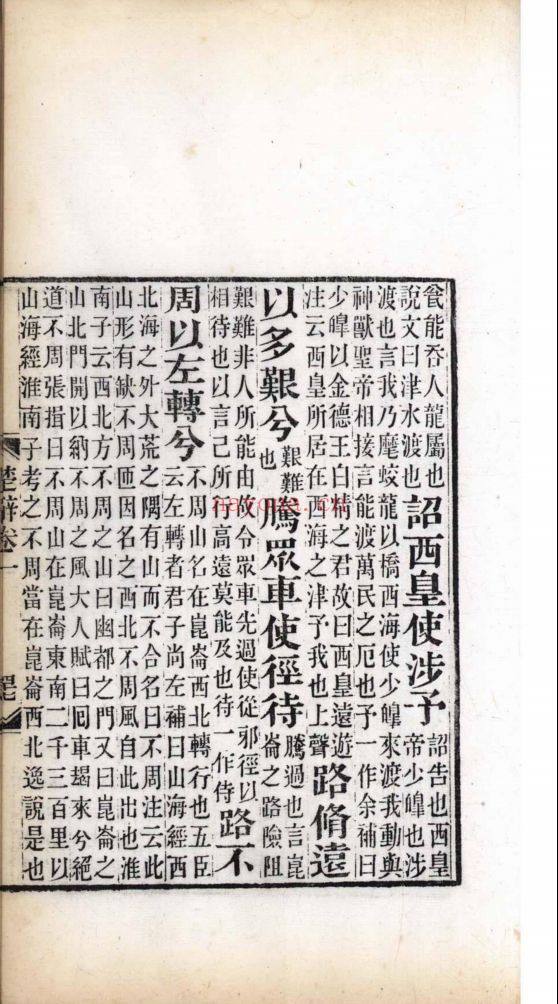 瓮能吞人龍屬也
說文曰津水渡也
詔西皇使涉予
詔告也西皇
帝少皥也涉
渡也言我乃麾蛟龍以橋西海使少皥來渡我動與
神獸聖帝相接言能渡萬民之厄也予一作余補曰
少皥以金德王白精之君故曰西皇遠遊
注云西皇所居在西海之津予我也上聲
路脩遠
以多艱兮
艱難
也
騰眾車使徑待
騰過也言崑
崙之路險阻
艱難非人所能由故令眾車先過使從邪徑以
相待也以言己所行高遠莫能及也待一作侍
路不
周以左轉兮
不周山名在崑崙西北轉行也五臣
云左轉者君子尚左補曰山海經西
北海之外大荒之隅有山而不合名曰不周注云此
山形有缺不周匝因名之西北不周風自此出也淮
南子云西北方不周之山曰幽都之門又曰崑崙之
山北門開以納不周之風大人賦曰回車朅來兮絕
道不周張揖曰不周山在崑崙東南二千三百里以
山海經淮南子考之不周當在崑崙西北逸說是也
楚辭卷一
nayona.cn